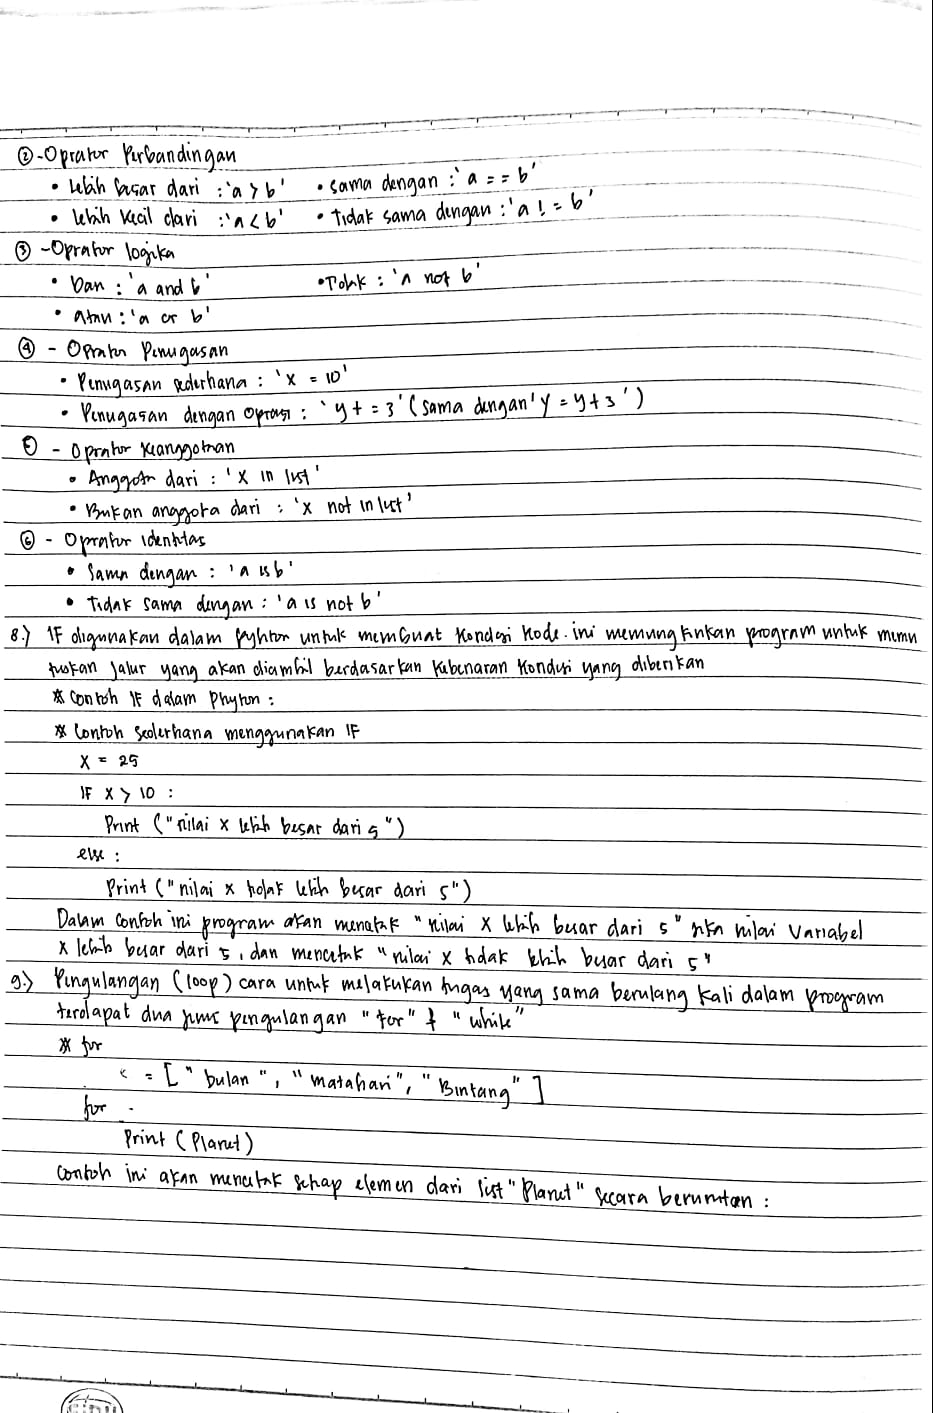 ② - Oprator Perbandingan
• Lebih besar dari : 'a > b' • Sama dengan : 'a == b'
• Lebih kecil dari : 'a < b' • Tidak sama dengan : 'a != b'
③ - Oprator logika
• Dan : 'a and b' • Tidak : 'a not b'
• Atau : 'a or b'
④ - Oprator Penugasan
• Penugasan sederhana : 'x = 10'
• Penugasan dengan Oprasi : 'y += 3' (sama dengan 'y = y+3')
⑤ - Oprator Keanggotaan
• Anggota dari : 'x in list'
• Bukan anggota dari : 'x not in list'
⑥ - Oprator identitas
• Sama dengan : 'a is b'
• Tidak sama dengan : 'a is not b'
8.) IF digunakan dalam pyhton untuk membuat Kondisi Kode. ini memungkinkan program untuk memu
tuskan Jalur yang akan diambil berdasarkan Kebenaran Kondisi yang diberikan
* Contoh IF dalam Phyton :
* Contoh Sederhana menggunakan IF
X = 25
IF X > 10 :
Print ("nilai x lebih besar dari 5")
else :
Print ("nilai x tidak lebih besar dari 5")
Dalam Contoh ini program akan mencetak "nilai X lebih besar dari 5" jika nilai Variabel
X lebih besar dari 5, dan mencetak "nilai x tidak lebih besar dari 5"
9.) Pengulangan (loop) cara untuk melakukan tugas yang sama berulang Kali dalam program
terdapat dua jenis pengulangan "for" & "while"
* for
= [" bulan ", "matahari", "Bintang"]
for
Print (Planet)
Contoh ini akan mencetak setiap elemen dari list "Planet" secara berurutan :